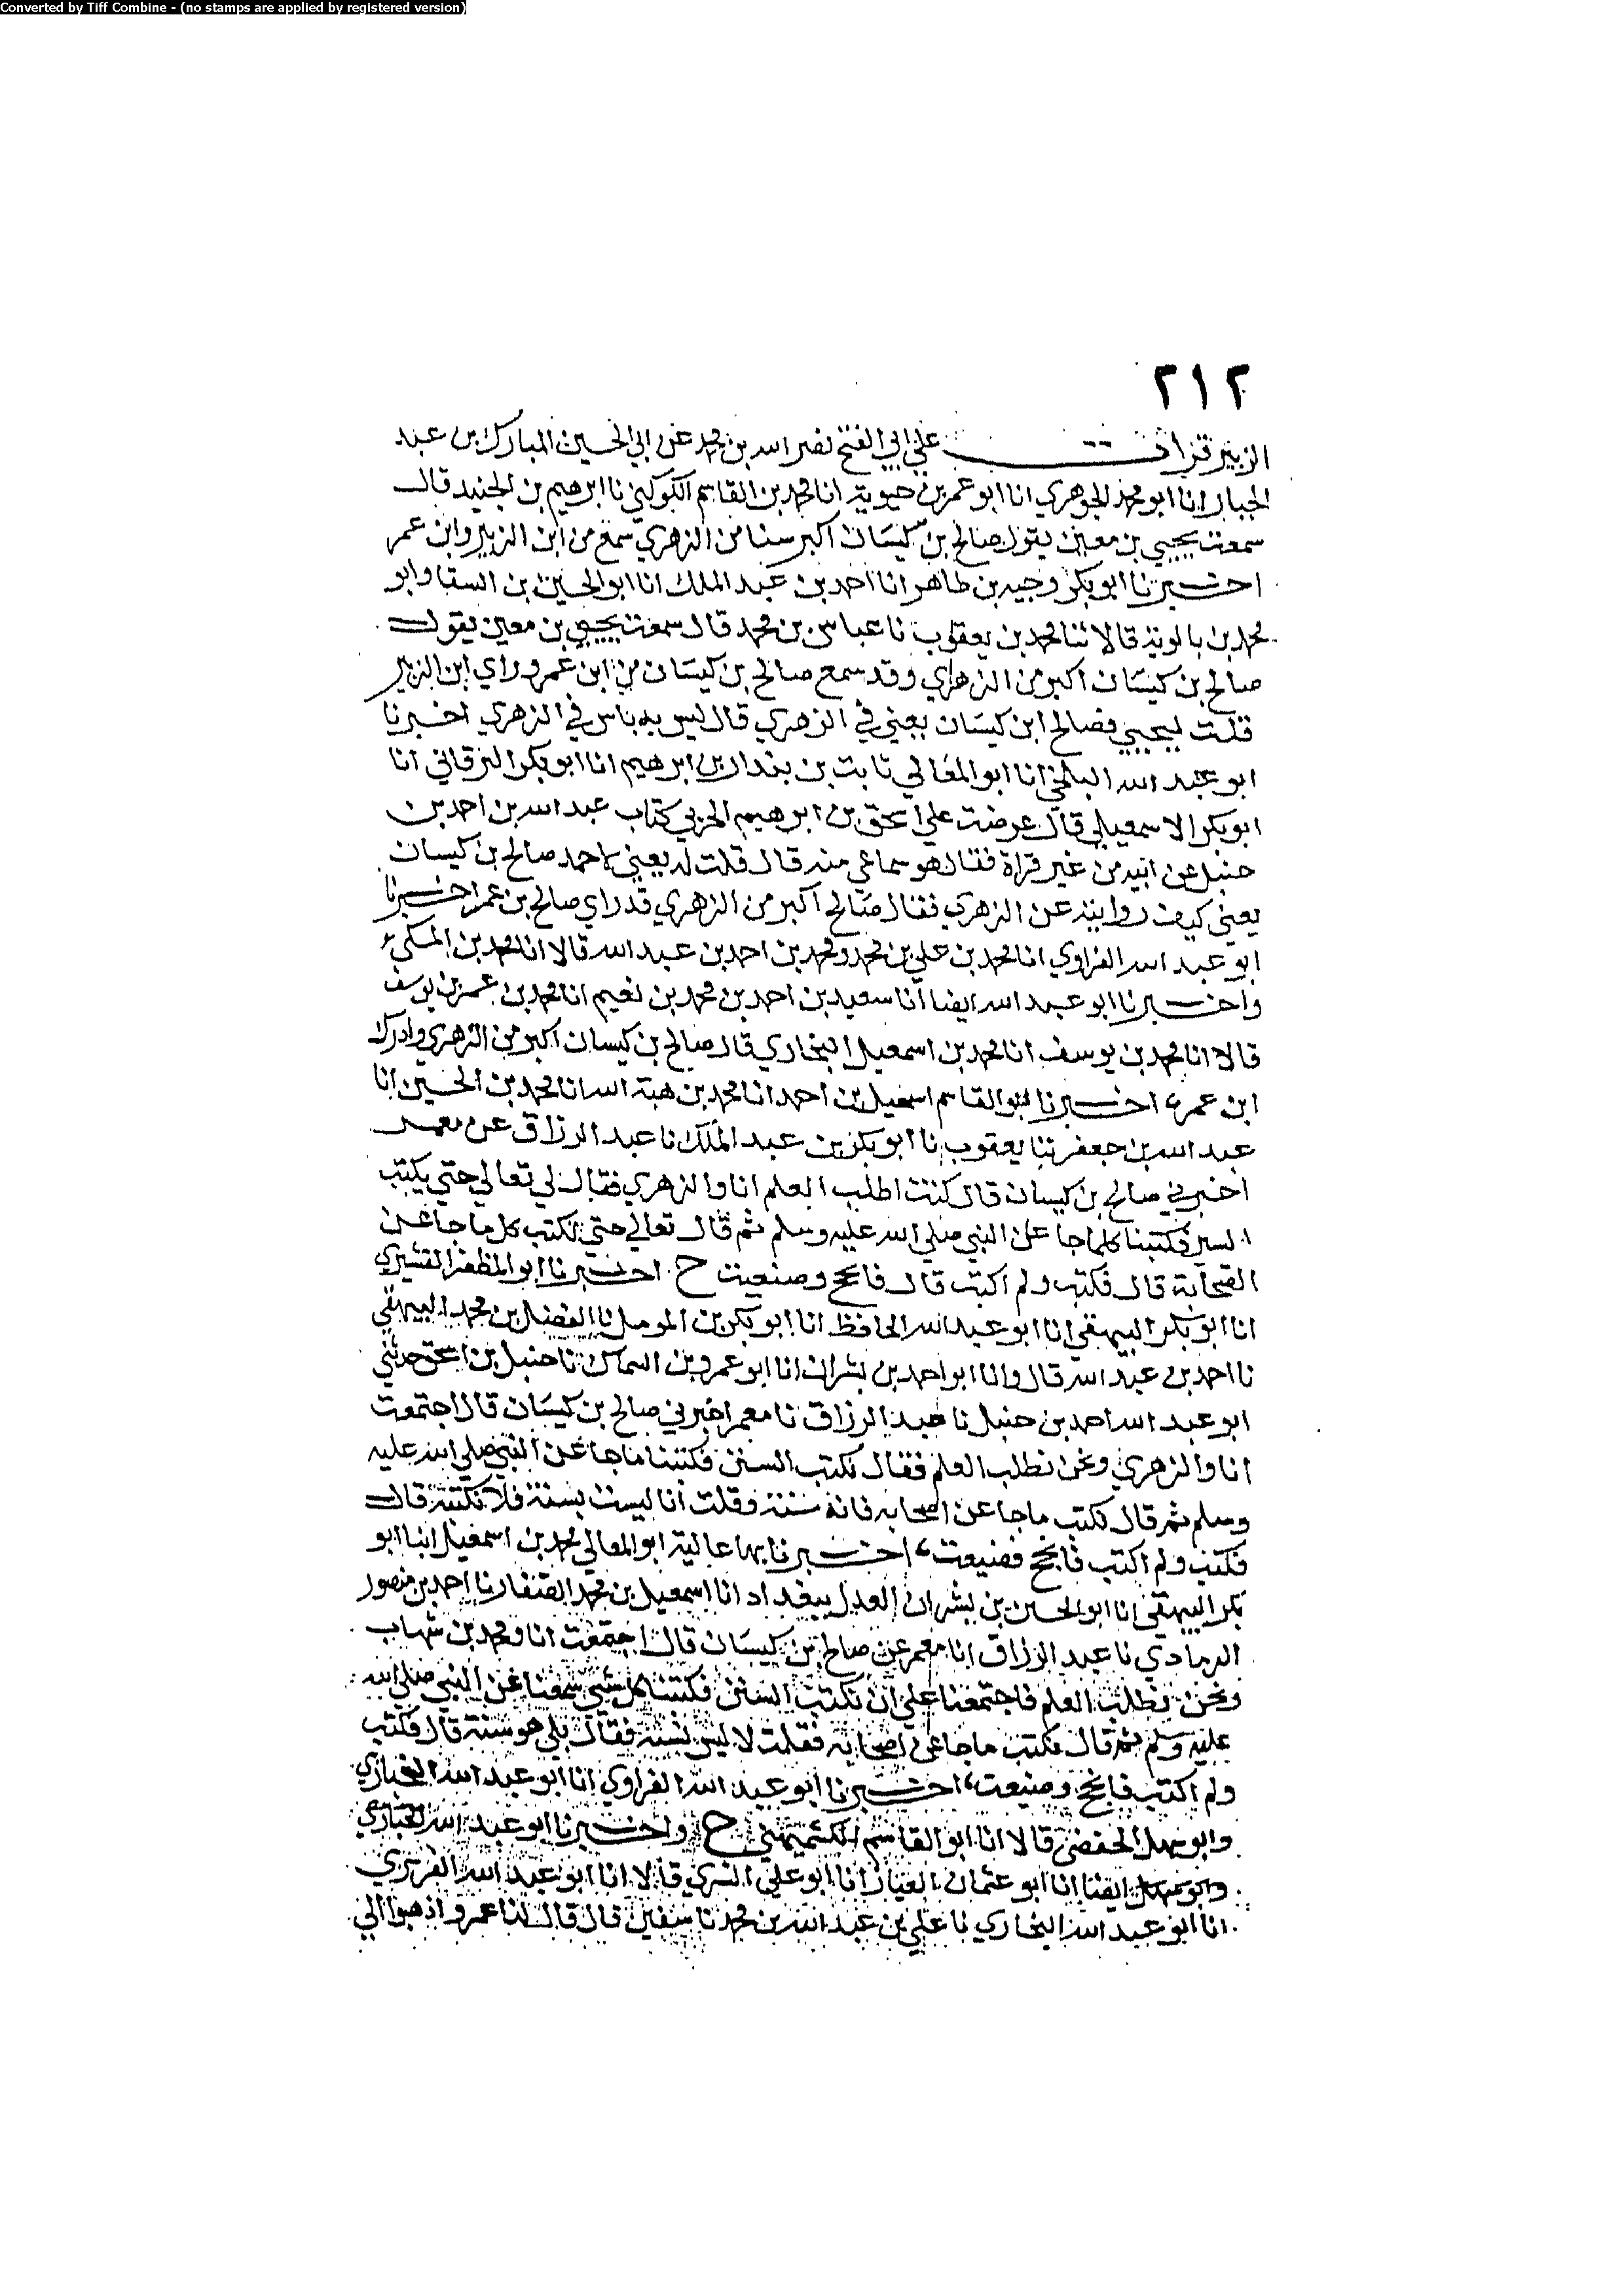 Converted by Tiff Combine - (no stamps are applied by registered version)
٢١٢
الزبير قرات علي ابي الفتح نصر الله بن محمد عن ابي الحسين المبارك بن عبد
الجبار انا ابو محمد الجوهري انا ابو عمر بن حيوية انا محمد بن القاسم الكوكبي نا ابرهيم بن الجنيد قال
سمعت يحيي بن معين يقول صالح بن كيسان اكبر سنا من الزهري سمع من ابن الزبير وابن عمر
اخبرنا ابو بكر وجيه بن طاهر انا احمد بن عبد الملك انا ابو الحسين بن السقا وابو
محمد بن بالويه قالا ثنا محمد بن يعقوب نا عباس بن محمد قال سمعت يحيي بن معين يقول
صالح بن كيسان اكبر من الزهري وقد سمع صالح بن كيسان من ابن عمر وراي ابن الزبير
قلت ليحيي فصالح ابن كيسان يعني في الزهري قال ليس به باس في الزهري اخبرنا
ابو عبد الله البلخي انا ابو المعالي ثابت بن بندار بن ابرهيم انا ابو بكر البرقاني انا
ابو بكر الاسمعيلي قال عرضت علي اسحق بن ابرهيم الحربي كتاب عبد الله بن احمد بن
حنبل عن ابيه من غير قراة فقال هو سماعي منه قال قلت له يعني لاحمد صالح بن كيسان
يعني كيف روايته عن الزهري فقال صالح اكبر من الزهري قد راي صالح بن عمر اخبرنا
ابو عبد الله الفراوي انا محمد بن علي بن محمد ومحمد بن احمد بن عبد الله قالا انا محمد بن المكي
واخبرنا ابو عبد الله ايضا انا سعيد بن احمد بن محمد بن نعيم انا محمد بن عمر بن يوسف
قالا انا محمد بن يوسف انا محمد بن اسمعيل البخاري قال صالح بن كيسان اكبر من الزهري وادرك
ابن عمر اخبرنا ابو القاسم اسمعيل بن احمد انا محمد بن هبة الله انا محمد بن الحسين انا
عبد الله بن جعفر نا يعقوب نا ابو بكر بن عبد الملك نا عبد الرزاق عن معمر
اخبرني صالح بن كيسان قال كنت اطلب العلم انا والزهري فقال لي تعالي حتي يكتب
السير فكتبنا كلما جا عن النبي صلي الله عليه وسلم ثم قال تعالي حتي نكتب كل ما جا عن
الصحابة قال فكتب ولم اكتب قال فانجح وضيعت ح اخبرنا ابو المظفر القشيري
انا ابو بكر البيهقي انا ابو عبد الله الحافظ انا ابو بكر بن المومل نا الفضل بن محمد البيهقي
نا احمد بن عبد الله قال وانا ابو احمد بن بشران انا ابو عمرو بن السماك نا حنبل بن اسحق حدثني
ابو عبد الله احمد بن حنبل نا عبد الرزاق نا معمر اخبرني صالح بن كيسان قال اجتمعت
انا والزهري ونحن نطلب العلم فقال نكتب السنن فكتبنا ما جا عن النبي صلي الله عليه
وسلم ثم قال نكتب ما جا عن اصحابه فانه سنة وقلت انا ليست بسنة فلا نكتبه قال
فكتب ولم اكتب فانجح فضيعت اخبرنا بها عالية ابو المعالي محمد بن اسمعيل انبا ابو
بكر البيهقي انا ابو الحسين بن بشران العدل ببغداد انا اسمعيل بن محمد الصفار نا احمد بن منصور
الرمادي نا عبد الرزاق انا معمر عن صالح بن كيسان قال اجتمعت انا ومحمد بن شهاب
ونحن نطلب العلم فاجتمعنا علي ان نكتب السنن فكتبنا كل شي سمعنا عن النبي صلي الله
عليه وسلم ثم قال نكتب ما جا عن اصحابه فقلت لا ليس بسنة فقال بلي هو سنة قال فكتب
ولم اكتب فانجح وضيعت اخبرنا ابو عبد الله الفراوي انا ابو عبد الله الخبازي
وابو سهل الحفصي قالا انا ابو القاسم الكشميهني ح واخبرنا ابو عبد الله الخبازي
وابو سهل ايضا انا ابو عثمان العيار انا ابو علي قالا انا ابو عبد الله الفربري
انا ابو عبد الله البخاري نا علي بن عبد الله بن محمد نا سفين قال قال لنا عمرو اذهبوا الي